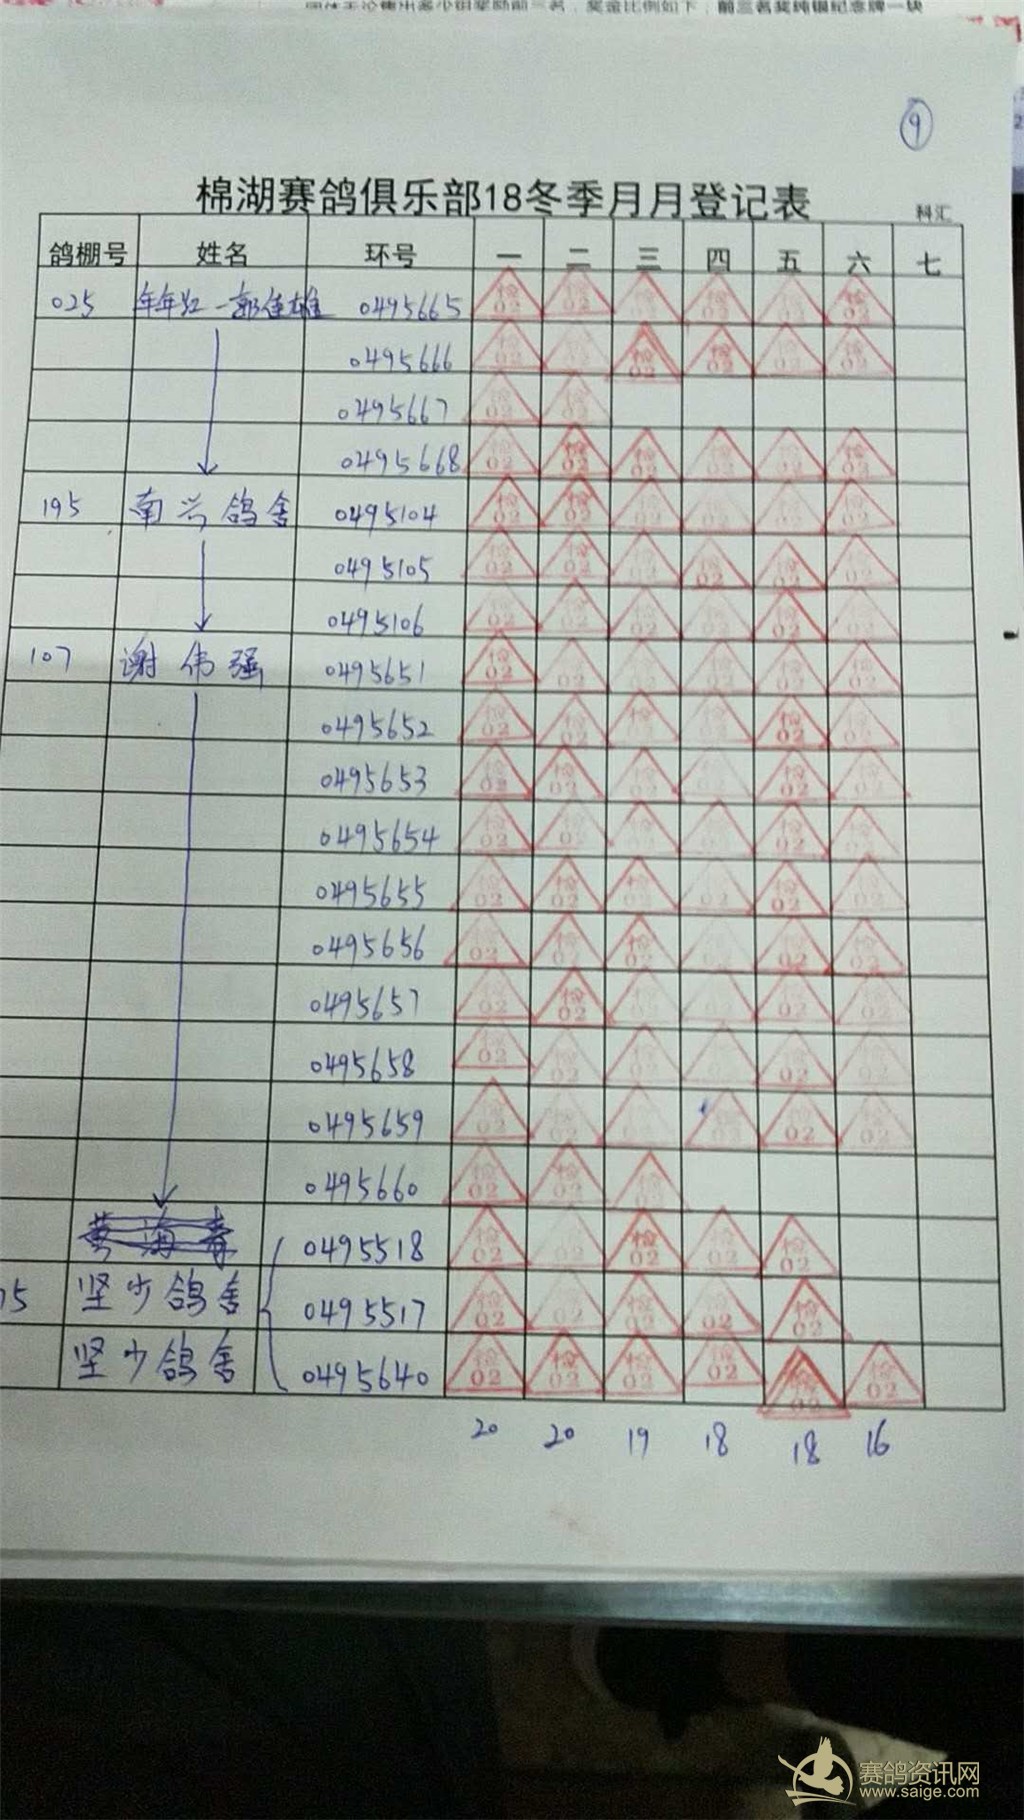 团体无论集出多少组奖励前三名，奖金比例如下：前三名奖纯银纪念牌一块
9
棉湖赛鸽俱乐部18冬季月月登记表 科汇
鸽棚号 姓名 环号 一 二 三 四 五 六 七
025 年年红-郭佳雄 0495665 检02 检02 检02 检02 检02 检02
0495666 检02 检02 检02 检02 检02 检02
0495667 检02 检02
0495668 检02 检02 检02 检02 检02 检02
195 南兴鸽舍 0495104 检02 检02 检02 检02 检02 检02
0495105 检02 检02 检02 检02 检02 检02
0495106 检02 检02 检02 检02 检02 检02
107 谢伟强 0495651 检02 检02 检02 检02 检02 检02
0495652 检02 检02 检02 检02 检02 检02
0495653 检02 检02 检02 检02 检02 检02
0495654 检02 检02 检02 检02 检02 检02
0495655 检02 检02 检02 检02 检02 检02
0495656 检02 检02 检02 检02 检02 检02
0495657 检02 检02 检02 检02 检02 检02
0495658 检02 检02 检02 检02 检02 检02
0495659 检02 检02 检02 检02 检02 检02
0495660 检02 检02 检02
0495518 检02 检02 检02 检02 检02
75 坚少鸽舍 0495517 检02 检02 检02 检02 检02
坚少鸽舍 0495640 检02 检02 检02 检02 检02 检02
20 20 19 18 18 16
赛鸽资讯网
www.saige.com